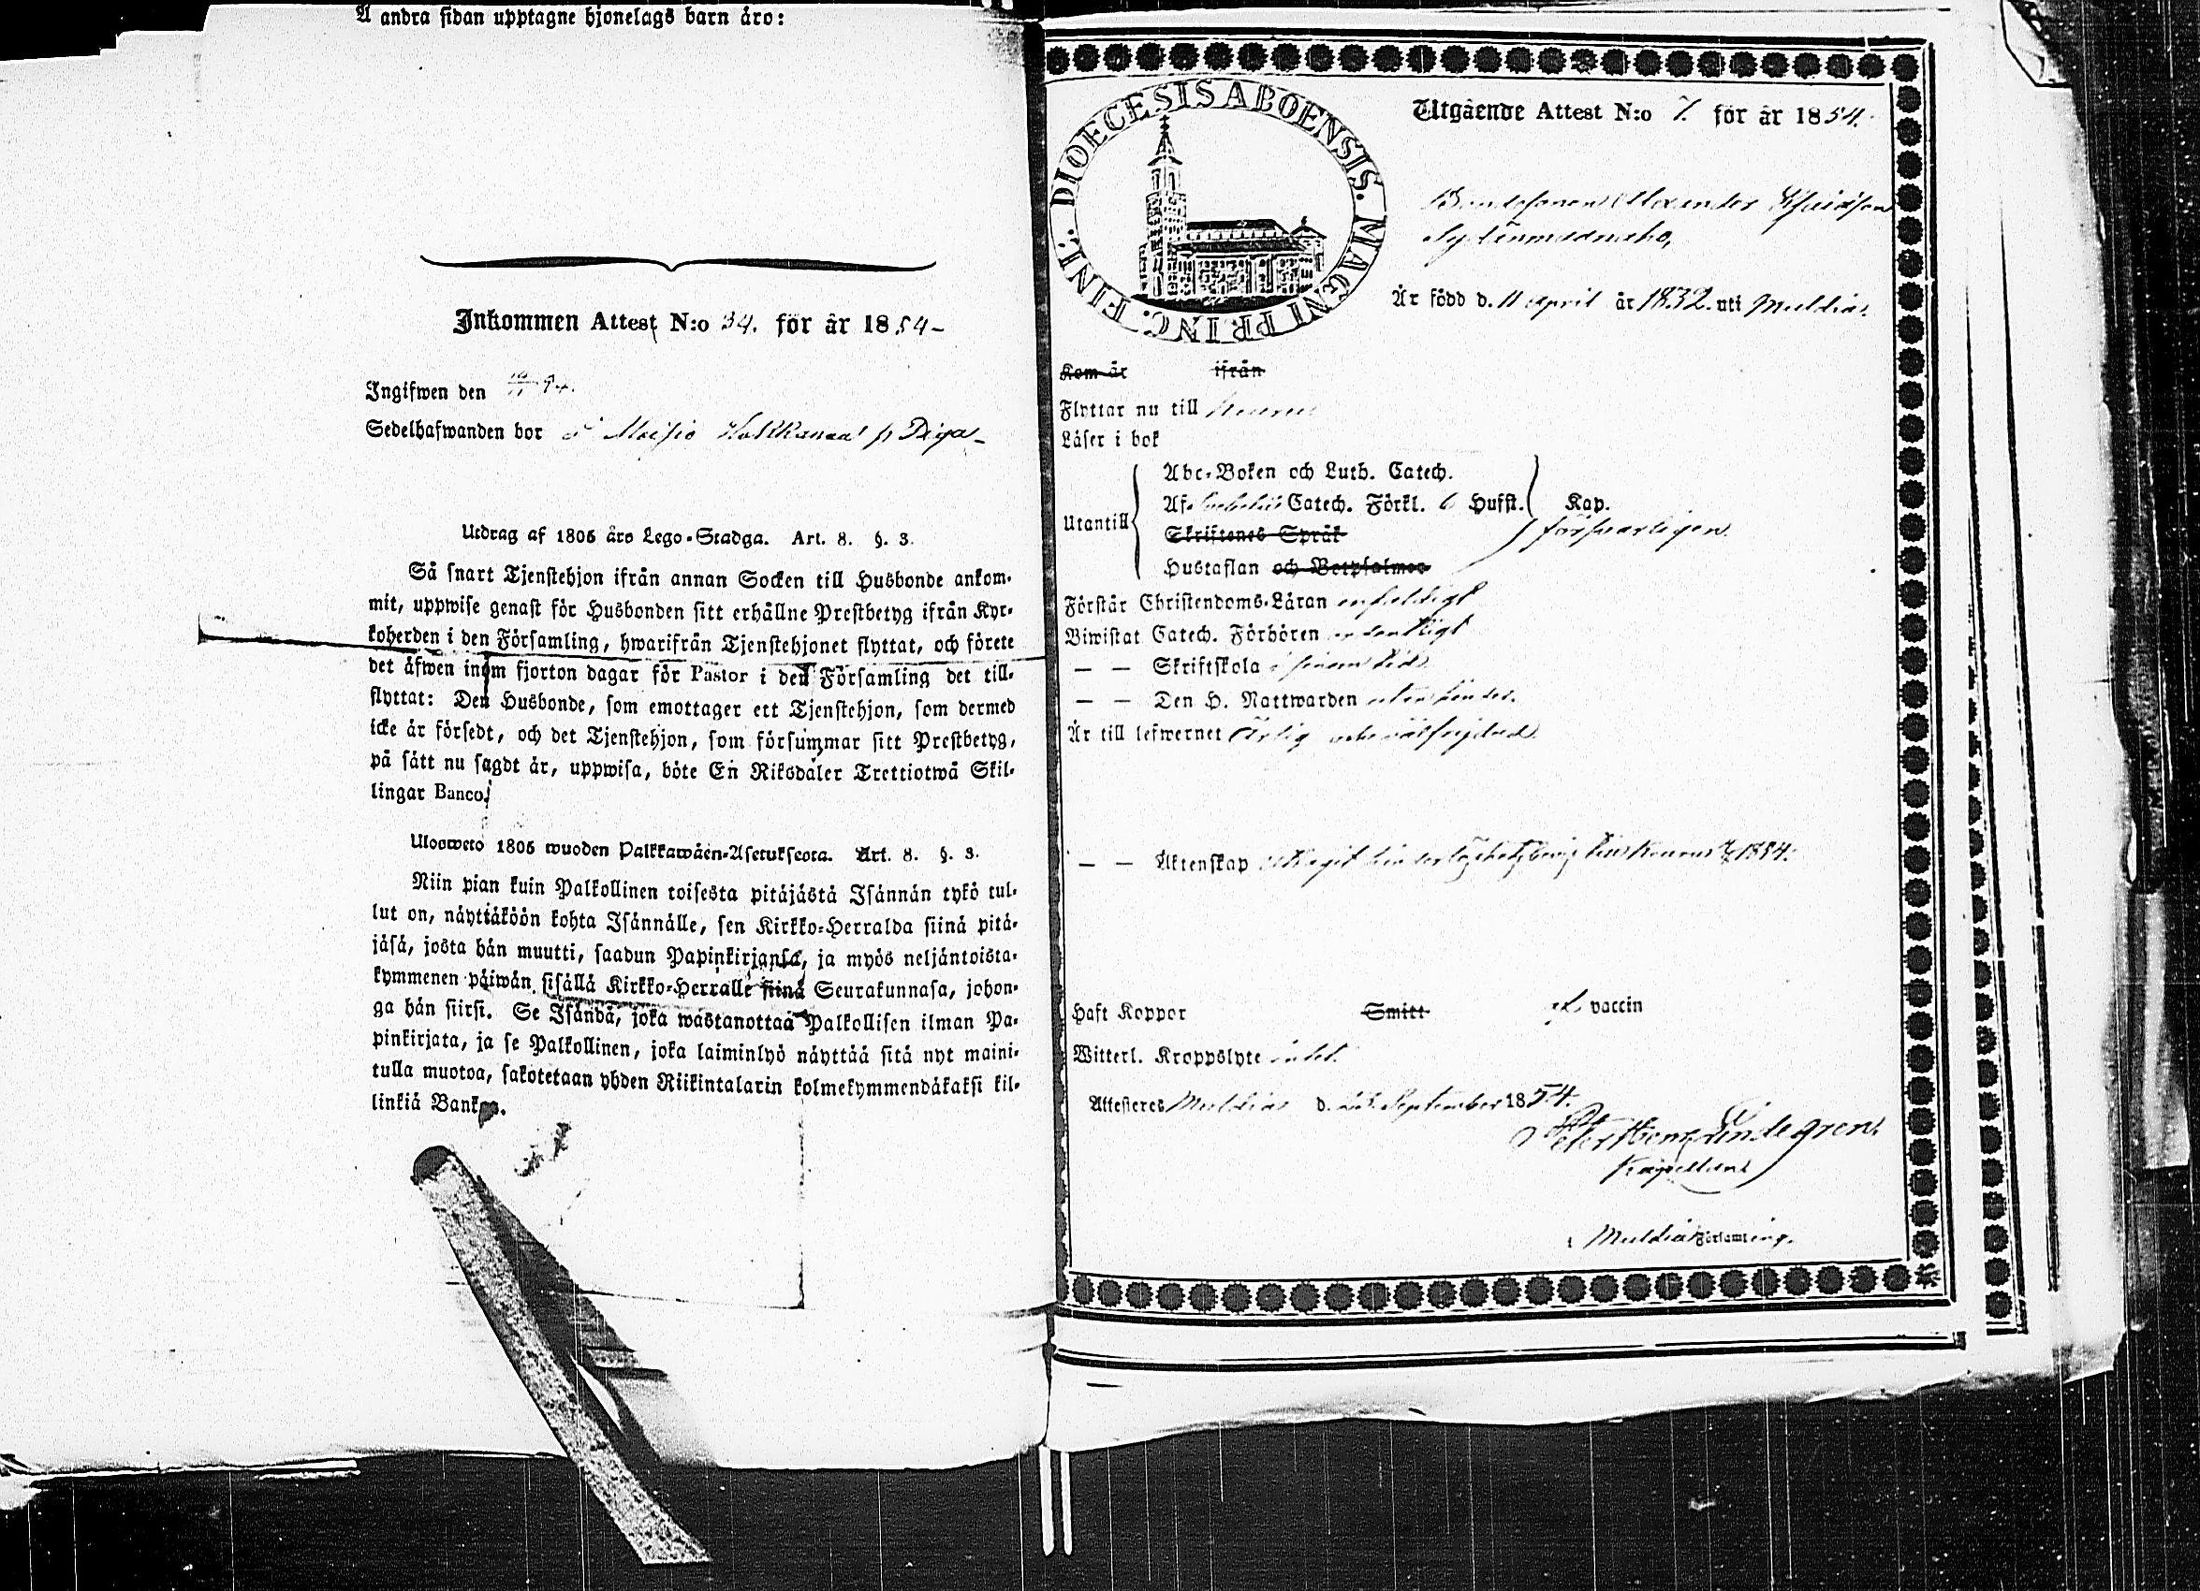 Å andra sidan upptagne hjonelags barn äro:
Inkommen Attest N:o 34. för år 1854-
Ingifwen den
Sedelhafwanden bor
Utdrag af 1805 års Lego-Stadga. Art. 8. §. 3.
Så snart Tjenstehjon ifrån annan Socken till Husbonde ankom-
mit, uppwise genast för Husbonden sitt erhållne Prestbetyg ifrån Kyr-
koherden i den Församling, hwarifrån Tjenstehjonet flyttat, och förete
det äfwen inom fjorton dagar för Pastor i den Församling det till-
flyttat: Den Husbonde, som emottager ett Tjenstehjon, som dermed
icke är försedt, och det Tjenstehjon, som försummar sitt Prestbetyg,
på sätt nu sagdt är, uppwisa, böte En Riksdaler Trettiotwå Skil-
lingar Banco.
Ulosweto 1805 wuoden Palkkawäen-Asetuksesta. Art. 8. §. 3.
Niin pian kuin Palkollinen toisesta pitäjästä Isännän tykö tul-
lut on, näyttäköön kohta Isännälle, sen Kirkko-Herralda siinä pitä-
jäsä, josta hän muutti, saadun Papinkirjansa, ja myös neljäntoista-
kymmenen päiwän sisällä Kirkko-Herralle siinä Seurakunnasa, johon-
ga hän siirsi. Se Isändä, joka wastanottaa Palkollisen ilman Pa-
pinkirjata, ja se Palkollinen, joka laiminlyö näyttää sitä nyt maini-
tulla muotoa, sakotetaan yhden Riikintalarin kolmekymmendäkaksi kil-
linkiä Bankos.
DIOECESIS ABOENSIS. MAGNI PRINC. FINL.
Utgående Attest N:o 7. för år 1854.
Bondesonen Alexander
Är född d. 11 April år 1832. uti Muldia.
Kom år ifrån
Flyttar nu till Keuru
Läser i bok
Utantill
Abc-Boken och Luth. Catech.
Af Catech. Förkl. 6 Hufst. Kap.
Skriftenes Språk försvarligen.
Hustaflan och Botpsalmer
Förstår Christendoms-Läran enfaldigt
Biwistat Catech. Förhören ordentligt
— — Skriftskola i sinom tid
— — Den H. Nattwarden
Är till lefwernet Ärlig och välfrejdad
— — Äktenskap
Haft Koppor Smitt vaccin
Witterl. Kroppslyte intet.
Attesteres Muldia d. September 1854.
Lindegren
Kapellan
i Muldia Församling.